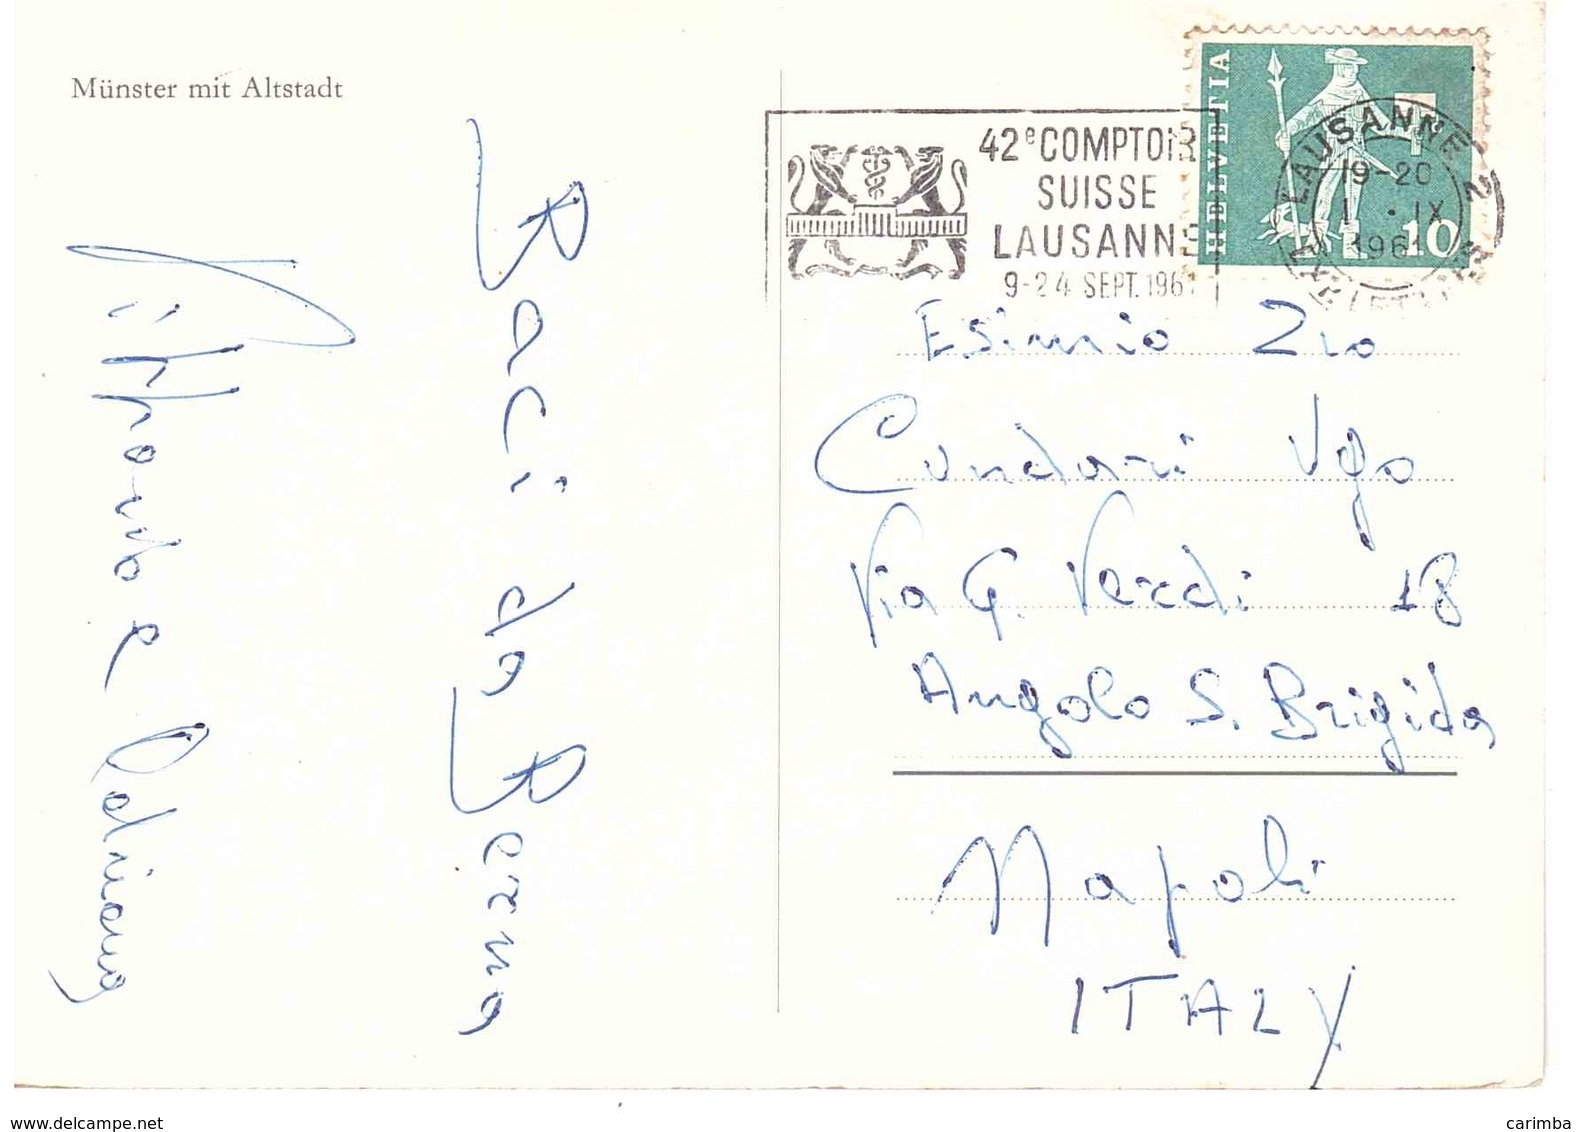 Münster mit Altstadt
Baci da Berna
Vittorio e Adriana
42e COMPTOIR
SUISSE
LAUSANNE
9-24 SEPT. 1961
HELVETIA
10
LAUSANNE 2
19-20
1. IX
1961
Esimio Zio
Cundari Ugo
Via G. Verdi 18
Angolo S. Brigida
Napoli
ITALY
www.delcampe.net
carimba